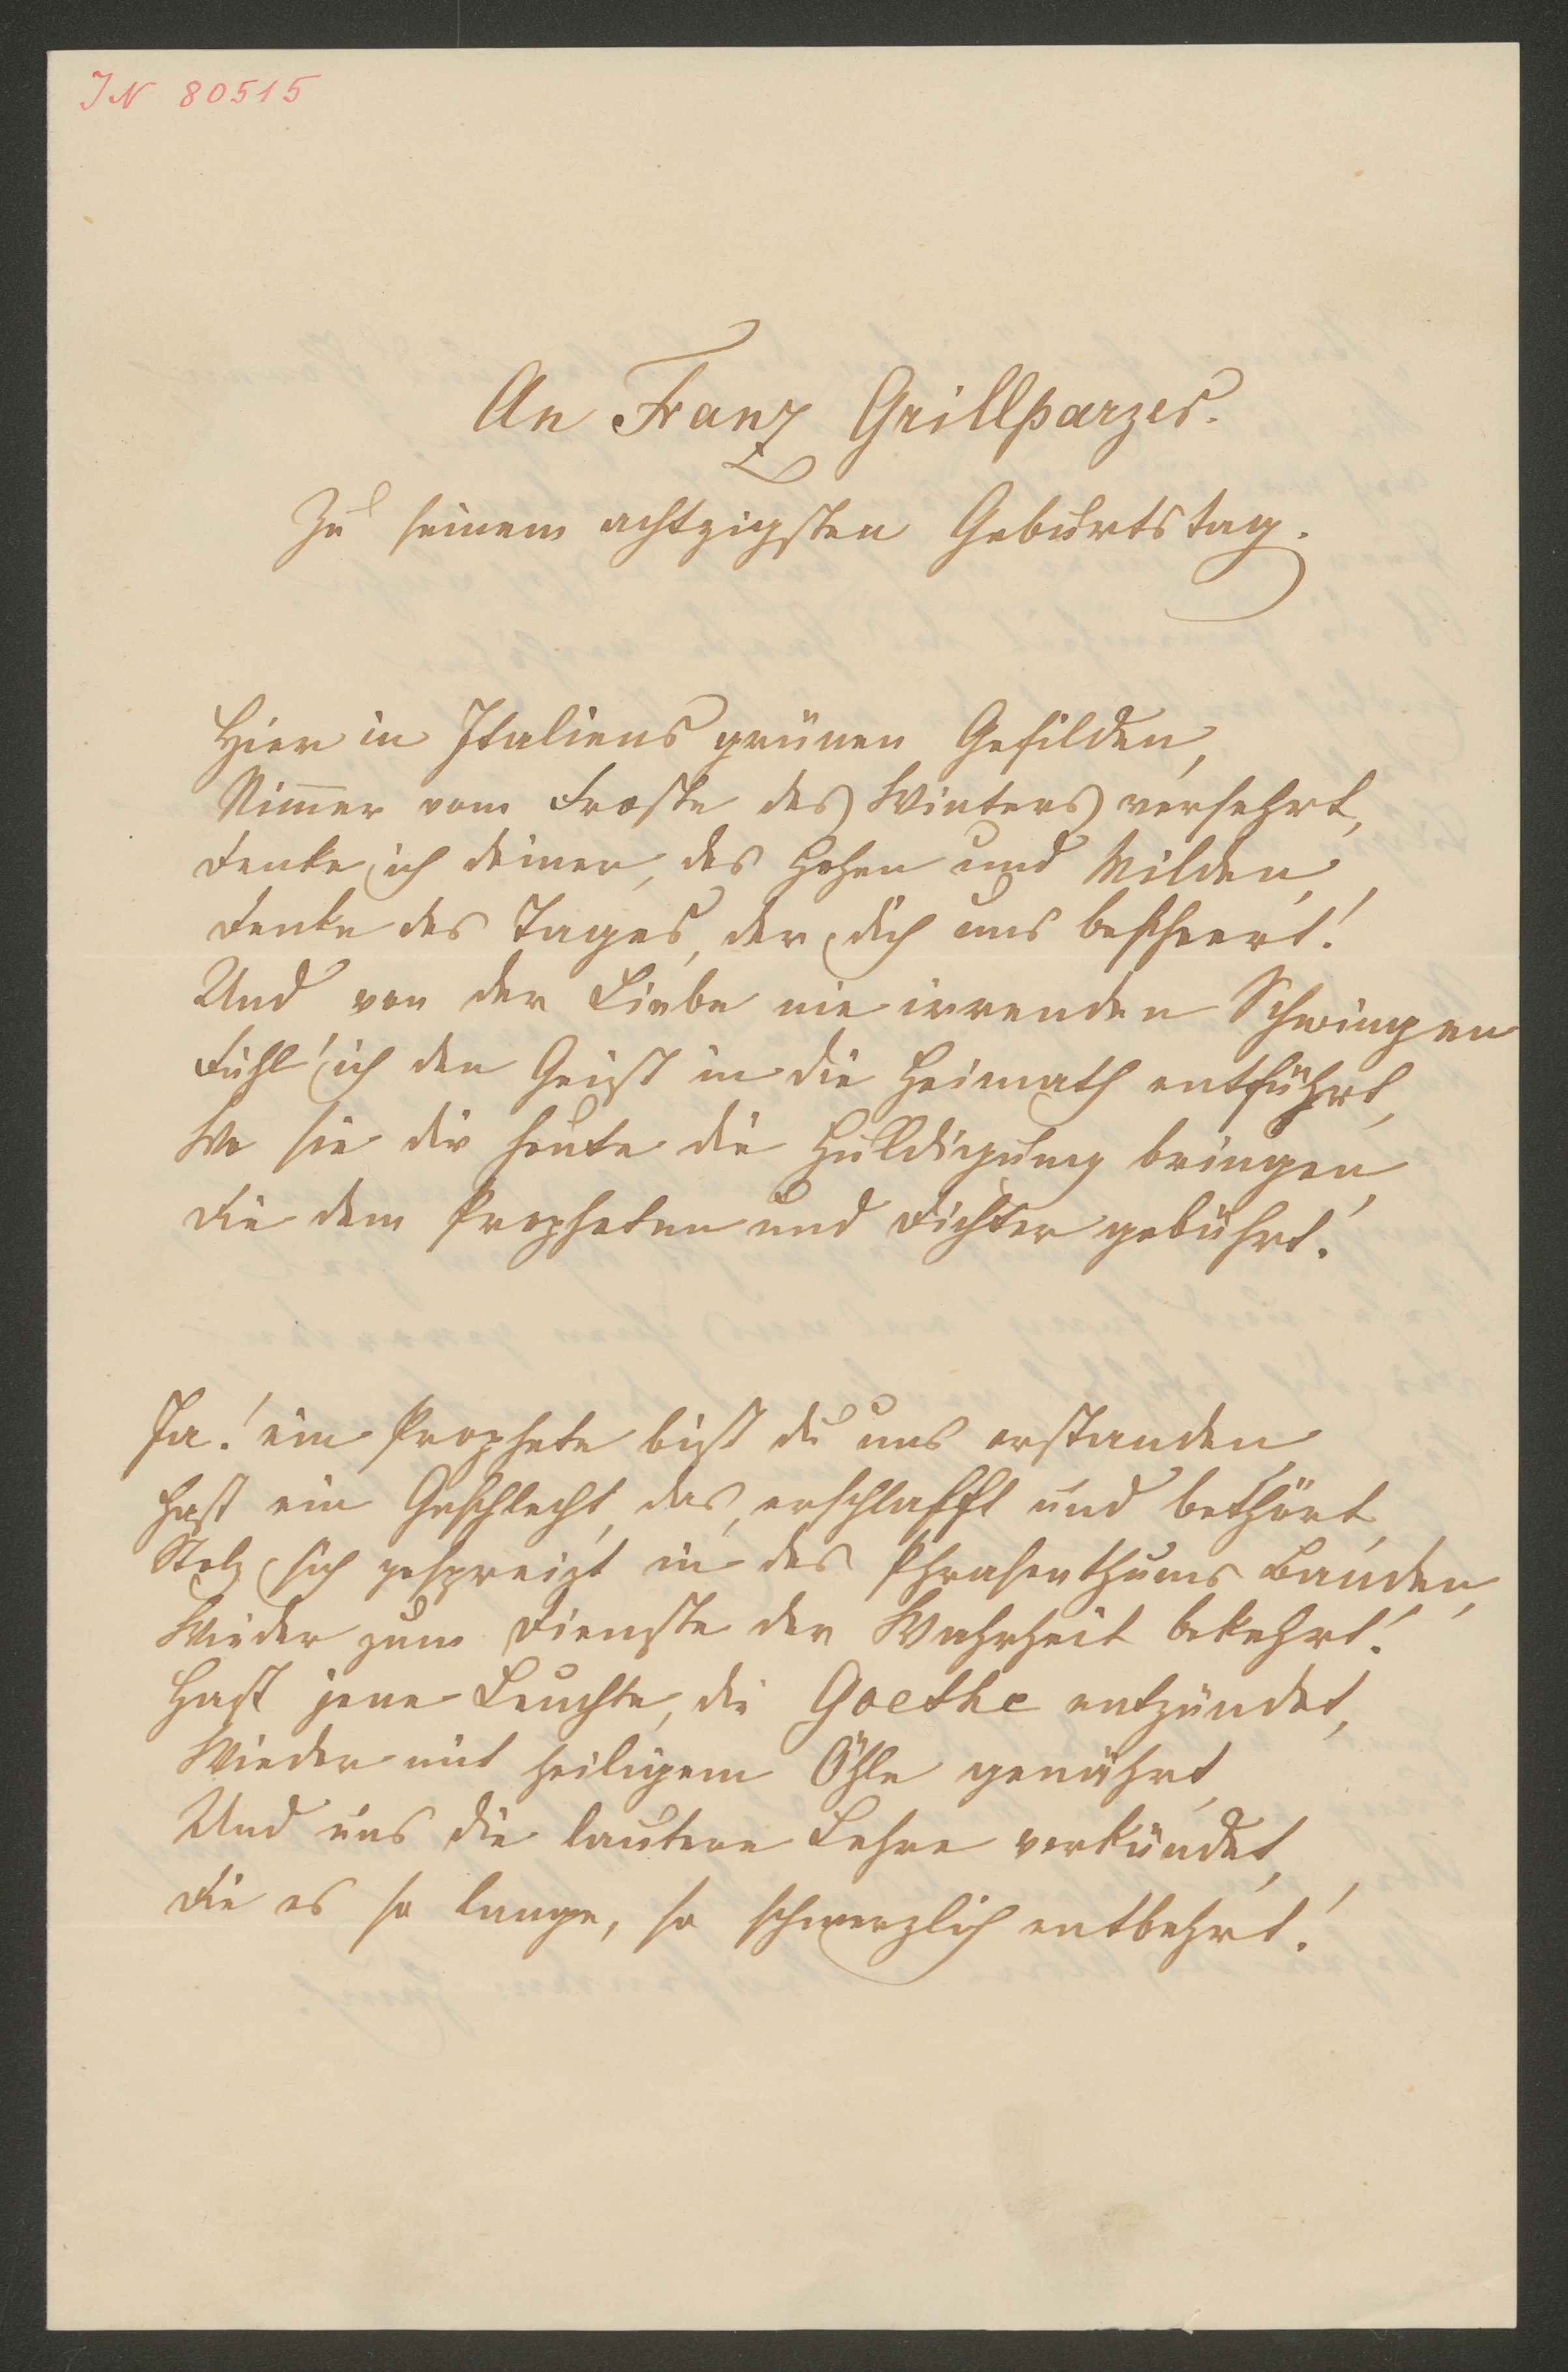 IN 80515
An Franz Grillparzer.
Zu seinem achtzigsten Geburtstag.
Hier in Italiens grünen Gefilden,
Nim̄er vom Froste des Winters versehrt,
Denke ich deiner, des Hohen und Milden,
Denke des Tages, der dich uns bescheert!
Und von der Liebe nie irrenden Schwingen
Fühl' ich den Geist in die Heimath entführt,
Wo sie dir heute die Huldigung bringen,
Die dem Propheten und Dichter gebührt!
Ja! ein Prophete bist du uns erstanden,
Hast ein Geschlecht, das, erschlafft und bethört,
Stolz sich gespreizt in des Phrasenthums Banden,
Wieder zum Dienste der Wahrheit bekehrt!
Hast jene Leuchte, die Goethe entzündet,
Wieder mit heiligem Öhle genährt,
Und uns die lautere Lehre verkündet,
Die es so lange, so schmerzlich entbehrt!